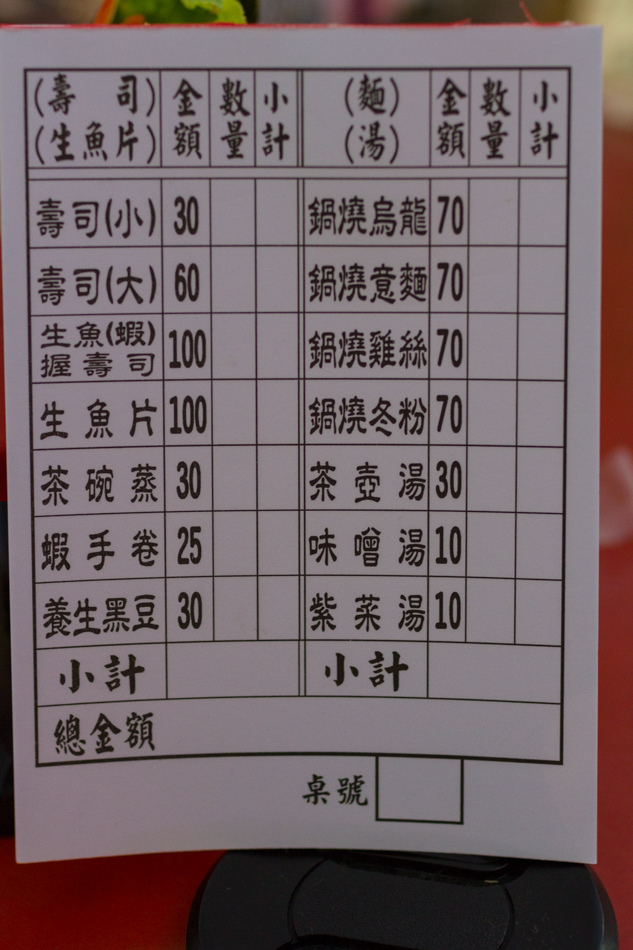 (壽 司) 金額 數量 小計 (麵) 金額 數量 小計
(生魚片) (湯)
壽司(小) 30 鍋燒烏龍 70
壽司(大) 60 鍋燒意麵 70
生魚(蝦)
握壽司 100 鍋燒雞絲 70
生魚片 100 鍋燒冬粉 70
茶碗蒸 30 茶壺湯 30
蝦手卷 25 味噌湯 10
養生黑豆 30 紫菜湯 10
小計 小計
總金額
桌號